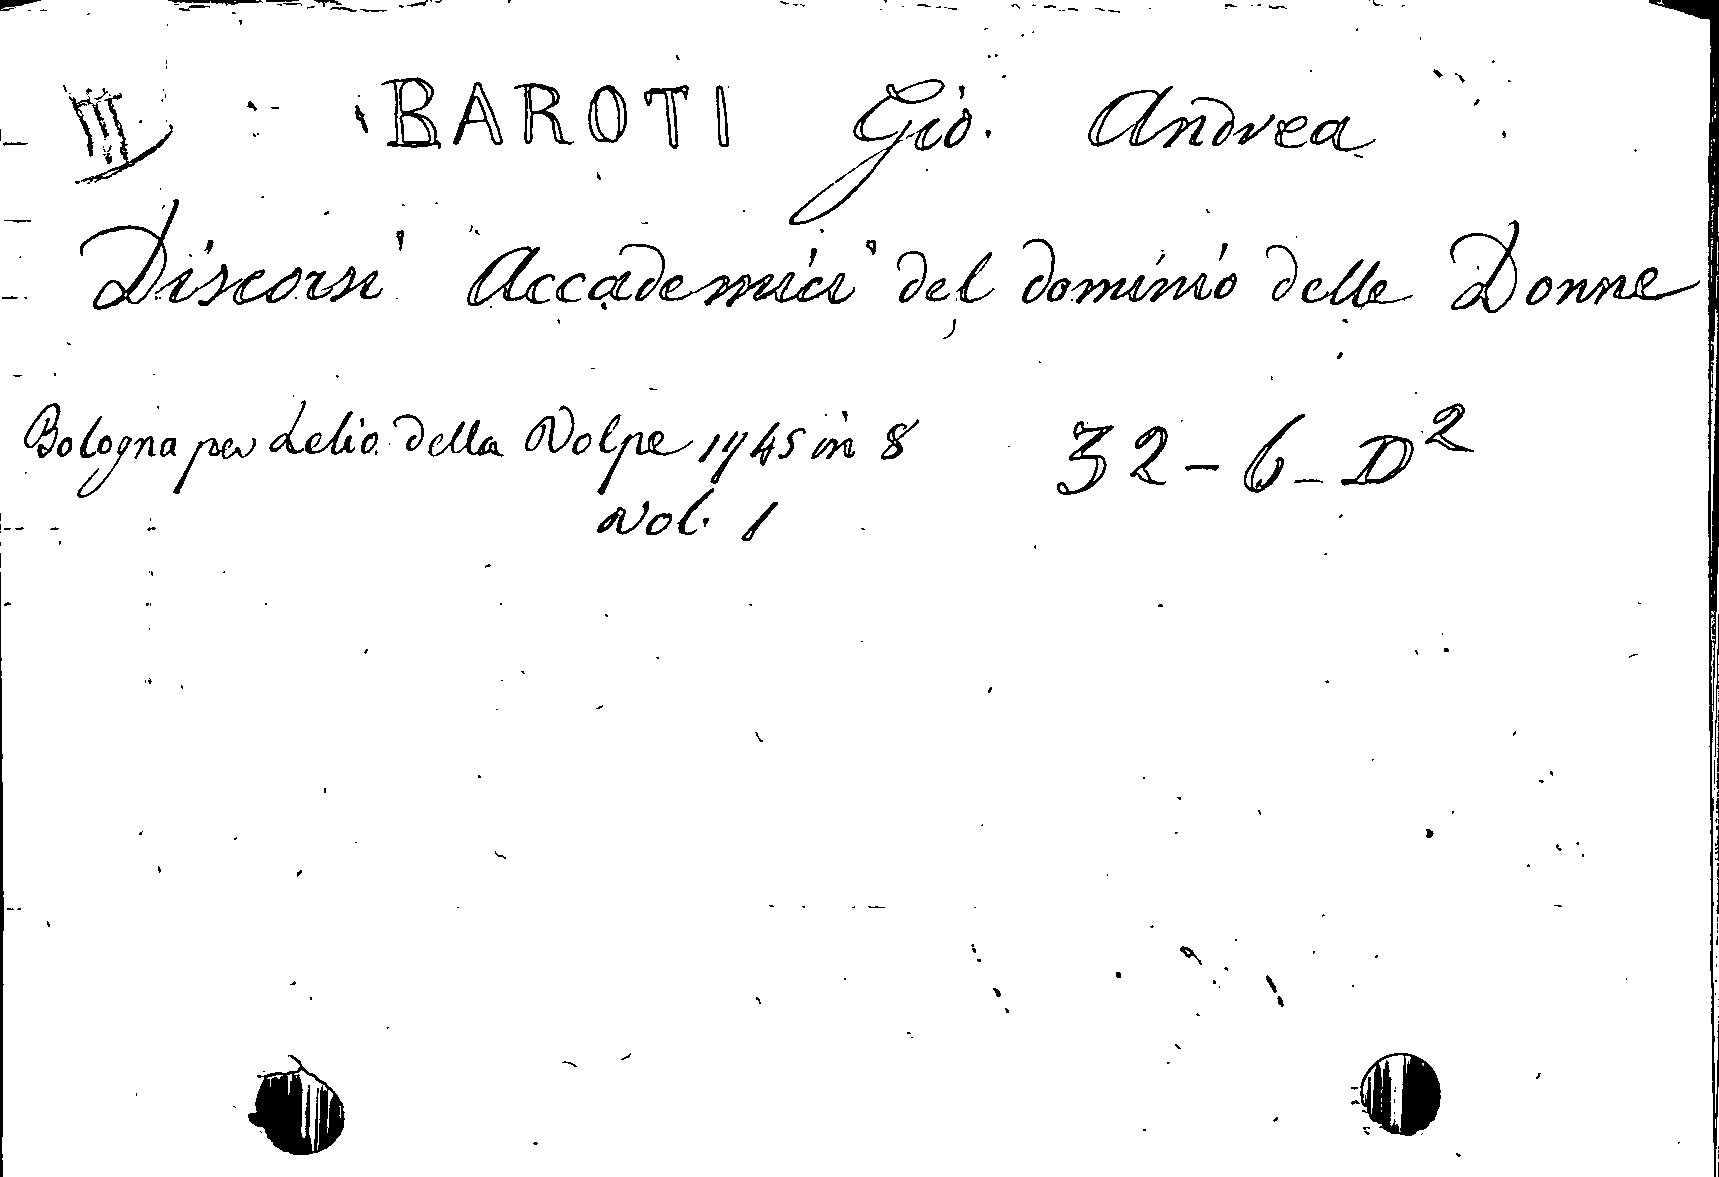 III BAROTI Gio. Andrea
Discorsi Accademici del dominio delle Donne
Bologna per Lelio della Volpe 1745 in 8 32-6-D²
Vol. 1